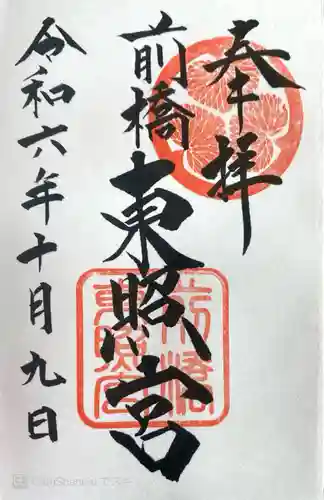 奉拝
前橋東照宮
令和六年十月九日
前橋
東照宮